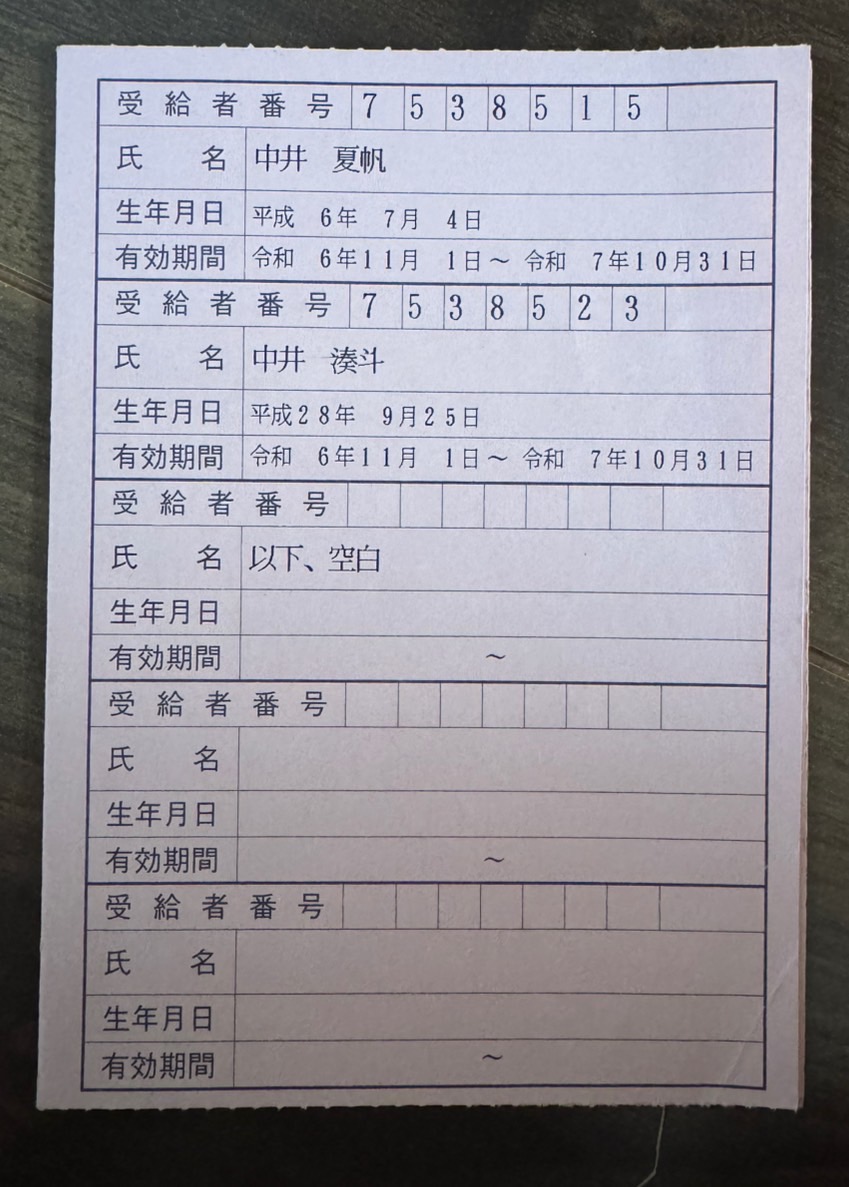 受給者番号 7 5 3 8 5 1 5
氏名 中井 夏帆
生年月日 平成 6年 7月 4日
有効期間 令和 6年11月 1日～ 令和 7年10月31日
受給者番号 7 5 3 8 5 2 3
氏名 中井 湊斗
生年月日 平成28年 9月25日
有効期間 令和 6年11月 1日～ 令和 7年10月31日
受給者番号
氏名 以下、空白
生年月日
有効期間 ～
受給者番号
氏名
生年月日
有効期間 ～
受給者番号
氏名
生年月日
有効期間 ～